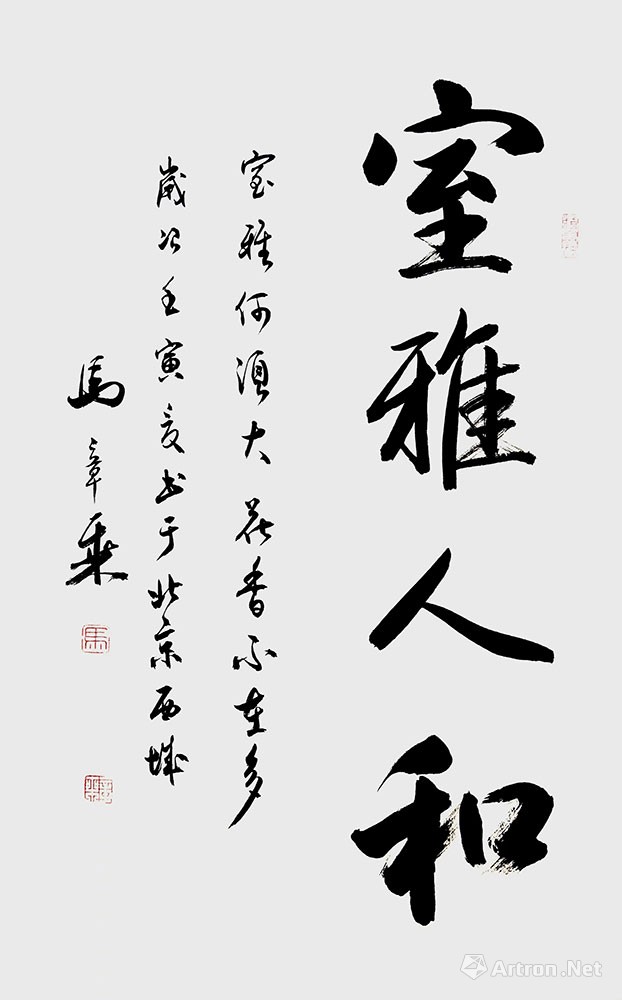 室雅人和
室雅何須大花香不在多
歲次壬寅夏书于北京西城
馬章乘
馬
Artron.Net